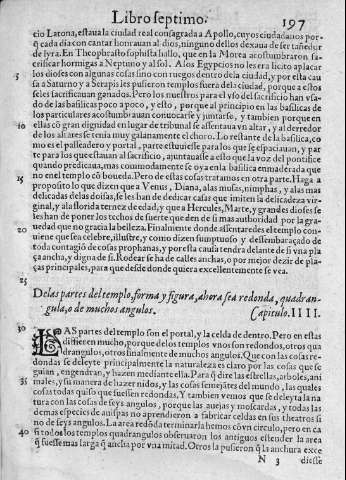 Libro septimo. 197
cio Latona, estaua la ciudad real consagrada a Apollo, cuyos ciudadanos por
q̃ cada dia con cantar honrauan al dios, ninguno dellos dexaua de ser tañedor
de lyra. En Theophrasto sophista hallo, que en la Morea acostumbraron sa-
crificar hormigas a Neptuno y al sol. A los Egypcios no les era licito aplacar
5 los dioses con algunas cosas sino con ruegos dentro dela ciudad, y por esta cau
sa a Saturno y a Serapis les pusieron templos fuera dela ciudad, porque a estos
se les sacrificauan ganados. Pero los nuestros para el vso del sacrificio han vsa-
do de las basilicas poco a poco, y esto, porque al principio en las basilicas de
los particulares acostumbrauan conuocarse y juntarse, y tambien porque en
10 ellas cõ gran dignidad en lugar de tribunal se assentaua vn altar, y al derredor
de los altares se tenia muy galanamente el choro. Lo restante de la basilica, co
mo es el passeadero y portal, para estuuiesse para los que se espaciauan, y par
te para los que estauan al sacrificio, ajuntauasse a esto que la voz del pontifice
quando predicaua, mas commodamente se oya en la basilica enmaderada que
15 no en el templo cõ boueda. Pero de estas cosas trataremos en otra parte. Haga a
proposito lo que dizen que a Venus, Diana, a las musas, nimphas, y a las mas
delicadas delas dioisas, se les han de dedicar casas que imiten la delicadeza vir
ginal, y a la florida ternez de edad, y que a Hercules, Marte, y grandes dioses se
les han de poner los techos de suerte que den de si mas authoridad por la gra-
20 uedad que no gracia la belleza. Finalmente donde assentares el templo conue
ne que sea celebre, illustre, y como dizen sumptuoso y desembaraçado de
toda contagiõ de cosas prophanas, y por esta causa tendra delante de si vna pla
ça ancha, y digna de si. Rodear se ha de calles anchas, o por mejor dezir de pla
ças principales, para que desde donde quiera excellentemente se vea.
25
De las partes del templo, forma y figura, ahora sea redonda, quadran-
gula, o de muchos angulos. Capitulo. IIII.
30 LAS partes del templo son el portal, y la celda de dentro. Pero en estas
differen mucho, porque delos templos vnos son redondos, otros qua
drangulos, otros finalmente de muchos angulos. Que con las cosas re-
dondas se deleyte principalmente la naturaleza es claro por las cosas que se
guian, engendran, y hazen mediante ella. Para q̃ dire las estrellas, arboles, ani
35 males, y su manera de hazer nidos, y las cosas semejãtes del mundo, las quales
cosas todas quiso que fuessen redondas. Y tambien vemos que se deleyta la na
tura con las cosas de seys angulos, porque las auejas y moscardas, y todas las
demas especies de auispas no aprendieron a fabricar celdas en sus theatros si
no de seys angulos. La area redõda terminarla hemos cõ vn circulo, pero en ca
40 si todos los templos quadrangulos obseruaron los antiguos estender la area
q̃ fuesse mas larga q̃ ancha por vna mitad. Otros la pusieron q̃ la anchura exce
N 3 diesse